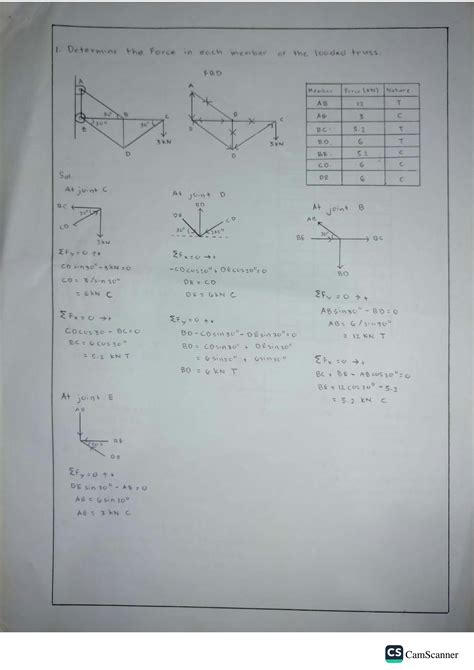 1. Determine the Force in each member of the loaded truss.
FBD
A
30°
B
30°
30°
C
E
D
3 kN
A
B
C
D
3 kN
Member Force (kN) Nature
AB 12 T
AE 3 C
BC 5.2 T
BD 6 T
BE 5.2 C
CD 6 C
DE 6 C
Sol.
At joint C
BC
30°
CD
3 kN
ΣFy = 0 ↑+
CD sin30° - 3 kN = 0
CD = 3/sin 30°
= 6 kN C
ΣFx = 0 →+
CD cos 30 - BC = 0
BC = 6 cos 30°
= 5.2 kN T
At joint D
BD
DE
CD
30°
30°
ΣFx = 0 →+
-CD cos30° + DE cos30° = 0
DE = CD
DE = 6 kN C
ΣFy = 0 ↑+
BD - CD sin30° - DE sin30° = 0
BD = CD sin30° + DE sin30°
= 6 sin30° + 6 sin30°
BD = 6 kN T
At joint B
AB
30°
BE
BC
BD
ΣFy = 0 ↑+
AB sin30° - BD = 0
AB = 6/sin30°
= 12 kN T
ΣFx = 0 →+
BC + BE - AB cos30° = 0
BE = 12 cos 30° - 5.2
= 5.2 kN C
At joint E
AE
BE
30°
DE
ΣFy = 0 ↑+
DE sin 30° - AE = 0
AE = 6 sin30°
AE = 3 kN C
CS CamScanner